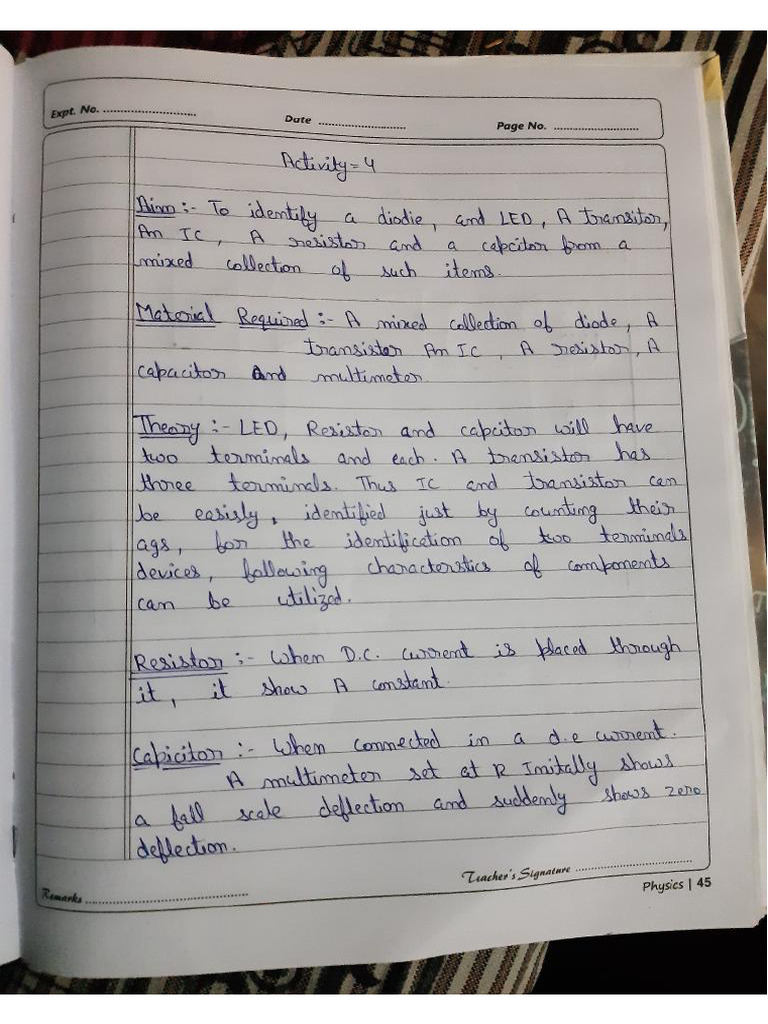 Expt. No. ............................
Date ............................
Page No. ............................
Activity = 4
Aim :- To identify a diodie, and LED, A transitor,
An IC, A resistor and a capcitor from a
mixed collection of such items.
Material Required :- A mixed collection of diode, A
transister An IC, A resistor, A
capacitor And multimeter.
Theory :- LED, Resistor and capcitor will have
two terminals and each. A transistor has
three terminals. Thus IC and transistor can
be easisly, identified just by counting their
ags, for the identification of two terminals
devices, following characterstics of components
can be utilized.
Resistor :- When D.C. current is placed through
it, it show A constant.
Capicitor :- When connected in a d.c current.
A multimeter set at R Initally shows
a fall scale deflection and suddenly shows zero
deflection.
Teacher's Signature ............................
Remarks ............................
Physics | 45